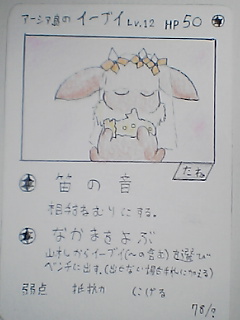 アーシア島の イーブイ LV.12 HP 50
たね
笛の音
相手をねむりにする。
なかまをよぶ
山札からイーブイ(〜の含む)を選び
ベンチに出す。(出せない場合手札に加える)
弱点 抵抗力 にげる
78/?